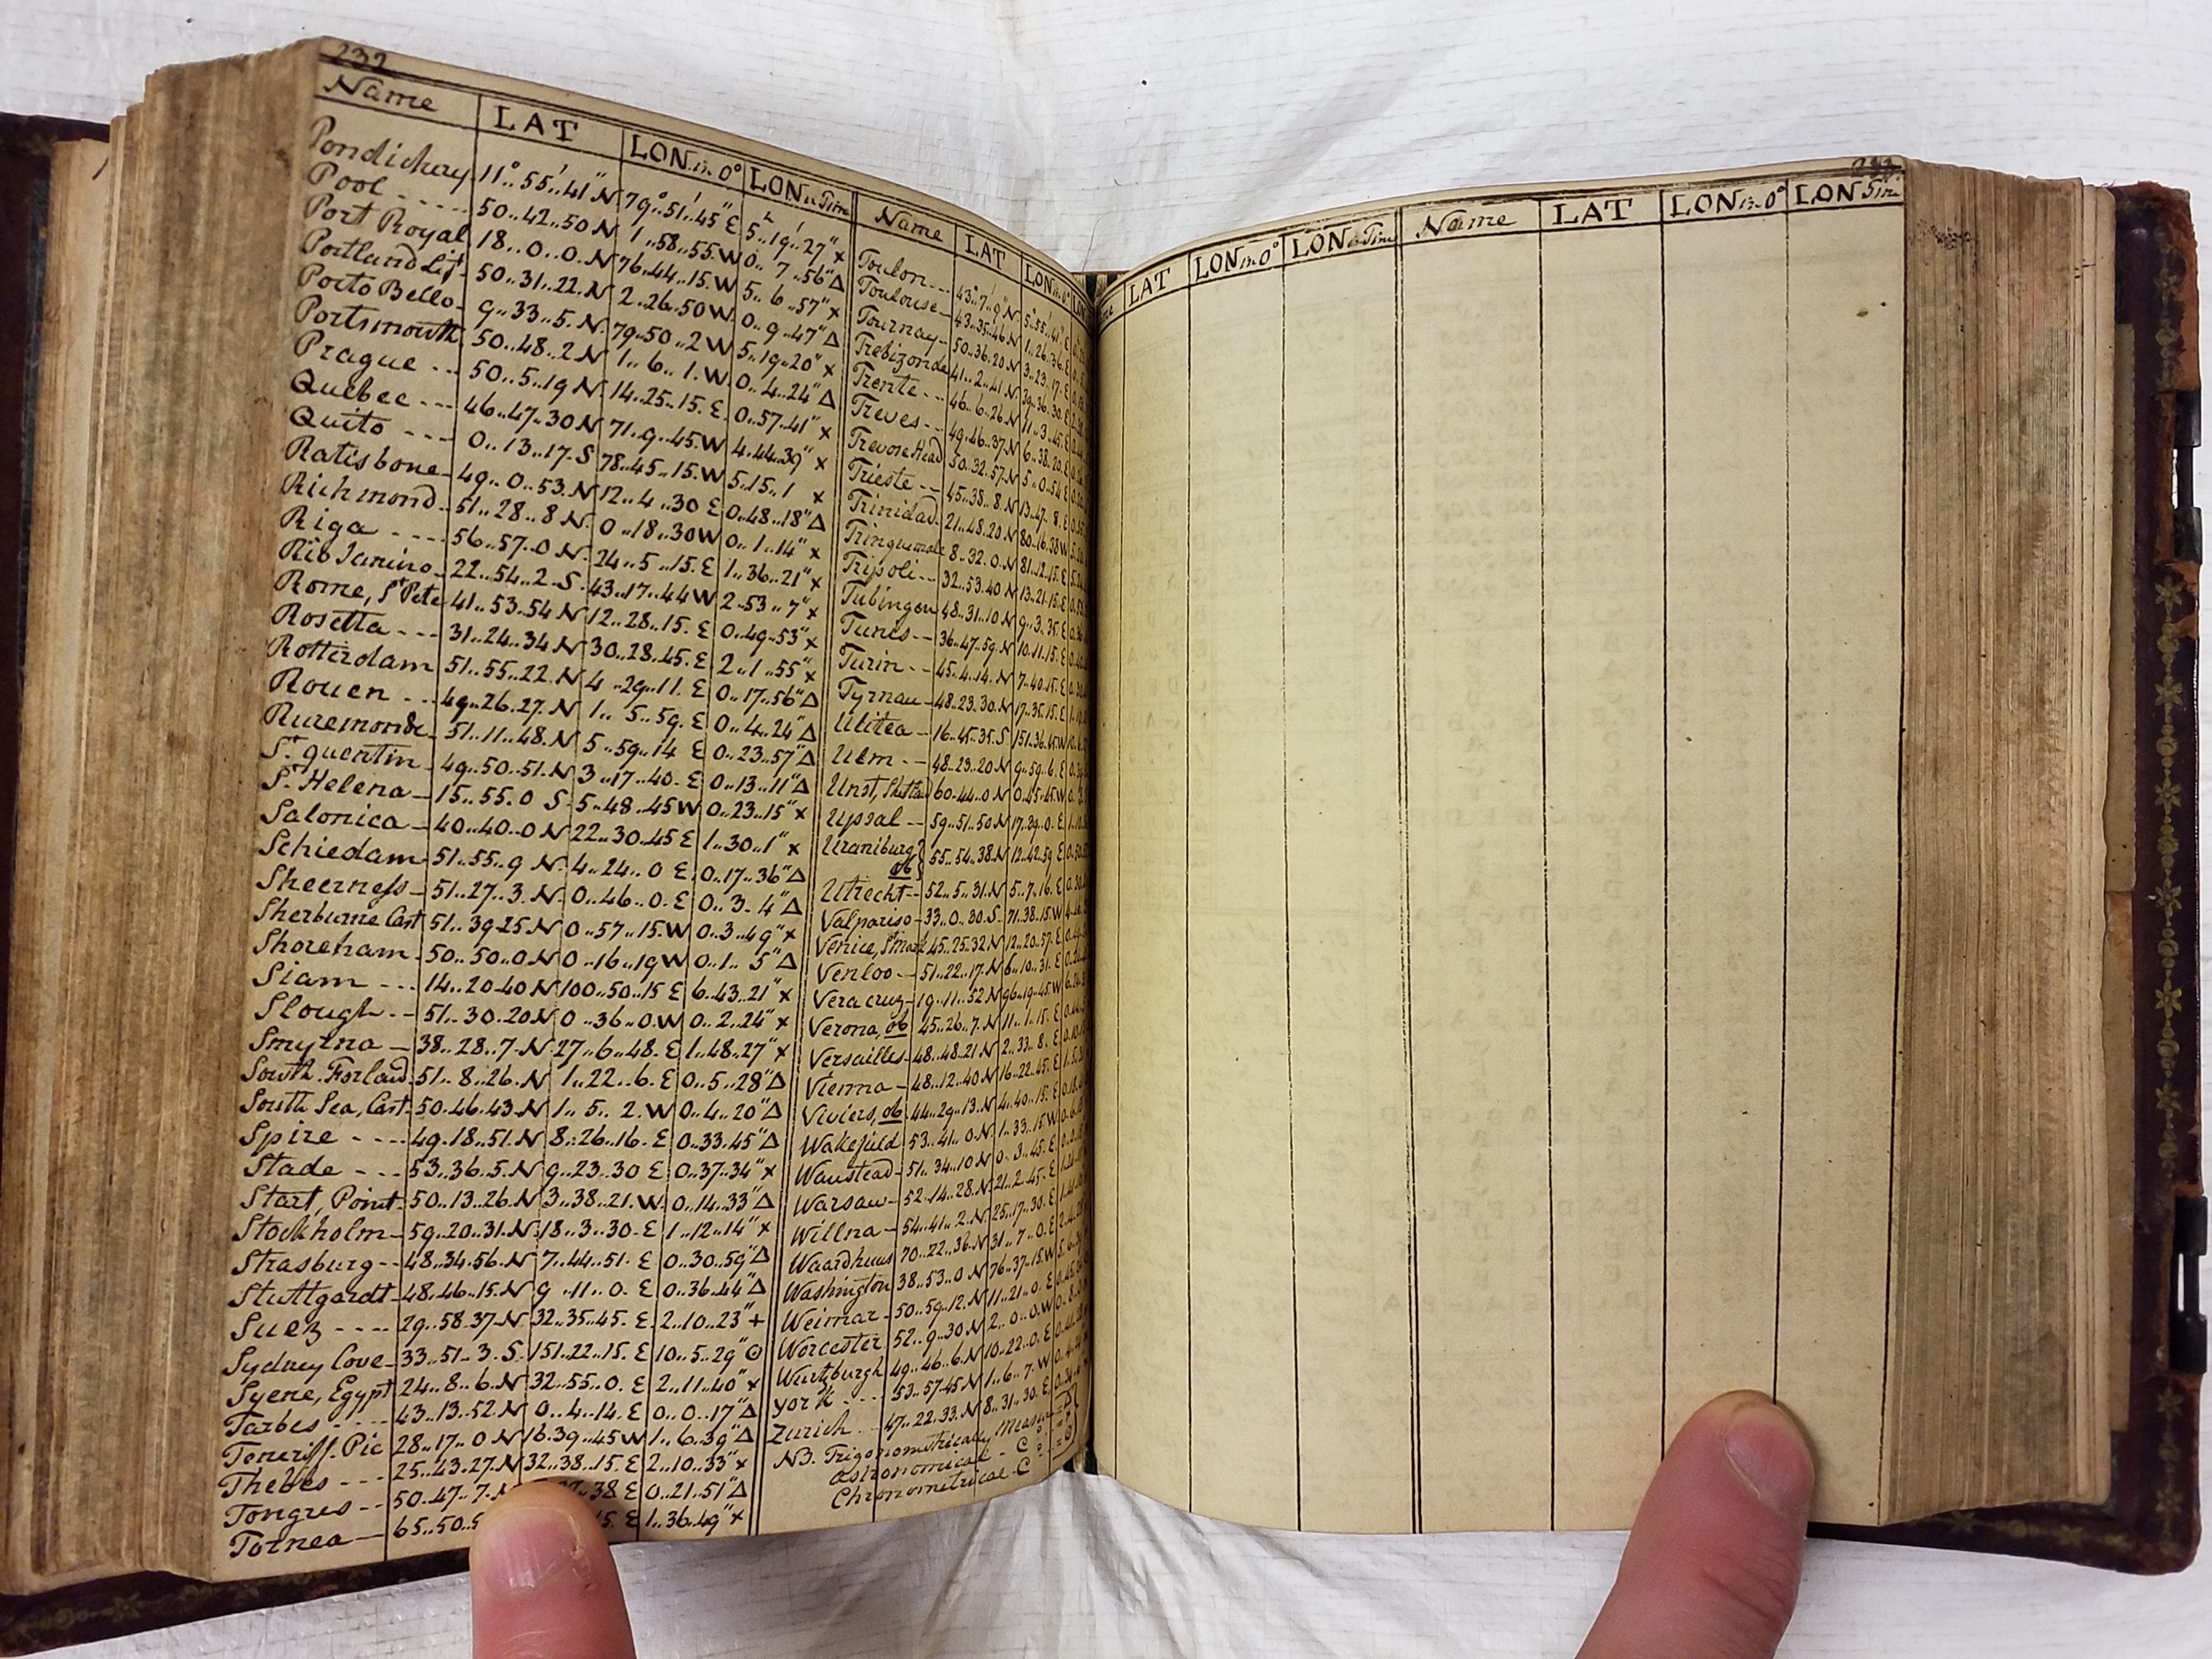 232
Name LAT LON in 0° LON in Time
Pondichery 11°..55'..41" N 79°..51'..45" E 5h..19'..27" x
Pool ----- 50..42..50 N 1..58..55. W 0..7..56" Δ
Port Royal 18..0..0. N 76..44..15. W 5..6..57" x
Portland Lit 50..31..22. N 2..26..50 W 0..9..47" Δ
Porto Bello- 9..33..5. N. 79..50..2 W 5..19..20" x
Portsmouth 50..48..2 N 1..6..1. W 0..4..24" Δ
Prague --- 50..5..19 N. 14..25..15. E. 0..57..41" x
Quebec --- 46..47..30 N 71..9..45. W 4..44..39" x
Quito --- 0..13..17. S 78..45..15. W 5..15..1 x
Ratisbone- 49..0..53. N 12..4..30 E 0..48..18" Δ
Richmond- 51..28..8 N. 0..18..30 W 0..1..14" x
Riga ---- 56..57..0 N. 24..5..15. E 1..36..21" x
Rio Janiro- 22..54..2. S. 43..17..44 W 2..53..7" x
Rome, St Pete 41..53..54 N 12..28..15. E 0..49..53" x
Rosetta --- 31..24..34 N 30..28..45. E 2..1..55" x
Rotterdam 51..55..22. N 4..29..11. E 0..17..56" Δ
Rouen --- 49..26..27. N 1..5..59. E 0..4..24" Δ
Ruremonde- 51..11..48. N 5..59..14 E 0..23..57" Δ
St. quentin- 49..50..51. N 3..17..40. E 0..13..11" Δ
St. Helena- 15..55..0 S 5..48..45 W 0..23..15" x
Salonica- 40..40..0 N 22..30..45 E 1..30..1" x
Schiedam 51..55..9 N. 4..24..0 E 0..17..36" Δ
Sheerness- 51..27..3. N. 0..46..0. E 0..3..4" Δ
Sherburne Cast 51..39..25 N 0..57..15. W 0..3..49" x
Shoreham- 50..50..0 N 0..16..19 W 0..1..5" Δ
Siam --- 14..20..40 N 100..50..15 E 6..43..21" x
Slough-- 51..30..20 N 0..36..0. W 0..2..24" x
Smyrna - 38..28..7. N 27..6..48. E 1..48..27" x
South. Forland 51..8..26. N 1..22..6. E 0..5..28" Δ
South Sea, Cast- 50..46..43. N 1..5..2. W 0..4..20" Δ
Spire ---- 49..18..51. N 8..26..16. E 0..33..45" Δ
Stade --- 53..36..5. N 9..23..30 E 0..37..34" x
Start, Point- 50..13..26. N 3..38..21. W 0..14..33" Δ
Stockholm- 59..20..31. N 18..3..30. E 1..12..14" x
Strasburg-- 48..34..56. N 7..44..51. E 0..30..59" Δ
Stuttgardt- 48..46..15. N 9..11..0. E 0..36..44" Δ
Suez ---- 29..58..37. N 32..35..45. E 2..10..23" +
Sydney Cove- 33..51..3. S. 151..22..15. E 10..5..29" ⊙
Syene, Egypt 24..8..6. N 32..55..0. E 2..11..40" x
Tarbes ---- 43..13..52. N 0..4..14. E 0..0..17" Δ
Teneriff. Pic 28..17..0 N 16..39..45 W 1..6..39" Δ
Thebes --- 25..43..27. N 32..38..15. E 2..10..33" x
Tongres -- 50..47..7. 38 E 0..21..51" Δ
Tornea - 65..50..5 15. E 1..36..49" x
Name LAT LON in 0° LON
Toulon--- 43°..7'..9" N 5°..55'..41" E
Toulouse- 43..35..46 N 1..26..36. E
Tournay- 50..36..20 N 3..23..17. E
Trebizonde 41..2..41 N. 39..36..30. E
Trente -- 46..6..26 N 11..3..45. E
Treves -- 49..46..37. N 6..38..20. E
Trevose Head 50..32..57. N 5..0..54
Trieste -- 45..38..8. N 13..47..8. E
Trinidad 21..48..20 N 80..16..38 W
Trinquemale 8..32..0. N 81..12..15. E
Tripoli -- 32..53..40 N 13..21..15. E
Tubingen 48..31..10 N 9..3..35. E
Tunes -- 36..47..59. N 10..11..15. E
Turin -- 45..4..14. N 7..40..15. E
Tyrnau - 48..23..30. N 17..35..15. E
Ulitea - 16..45..35. S 151..36..45 W
Ulm -- 48..23..20 N 9..59..6. E
Unst, Shetland 60..44..0 N 0..45..45. W
Upsal -- 59..51..50 N 17..39..0. E
Uraniburg
ob } 55..54..38. N 12..42..59 E
Utrecht-- 52..5..31. N 5..7..16. E
Valpariso- 33..0..30. S. 71..38..15. W
Venice, St mark 45..25..32 N 12..20..57. E
Venloo-- 51..22..17. N 6..10..31. E
Vera cruz- 19..11..52 N 96..19..45 W
Verona, ob 45..26..7. N 11..1..15. E
Versailles- 48..48..21 N 2..33..8. E
Vienna - 48..12..40 N 16..22..45. E
Viviers, ob 44..29..13. N 4..40..15. E
Wakefield 53..41..0 N. 1..33..15. W
Wanstead- 51..34..10 N 0..3..45. E
Warsaw- 52..14..28. N 21..2..45. E
Willna - 54..41..2. N. 25..17..30. E
Waardhuus 70..22..36. N 31..7..0. E
Washington 38..53..0 N 76..37..15. W
Weimar- 50..59..12. N 11..21..0. E
Worcester 52..9..30 N 2..0..0. W
Wurtzburgh 49..46..6. N 10..22..0. E
york --- 53..57..45 N 1..6..7. W
Zurich -- 47..22..33. N 8..31..30. E
NB. Trigonometrically = Δ
astronomical - C
Chronometrical. C = ⊙
LAT LON in 0° LON in Time Name LAT LON in 0° LON Time